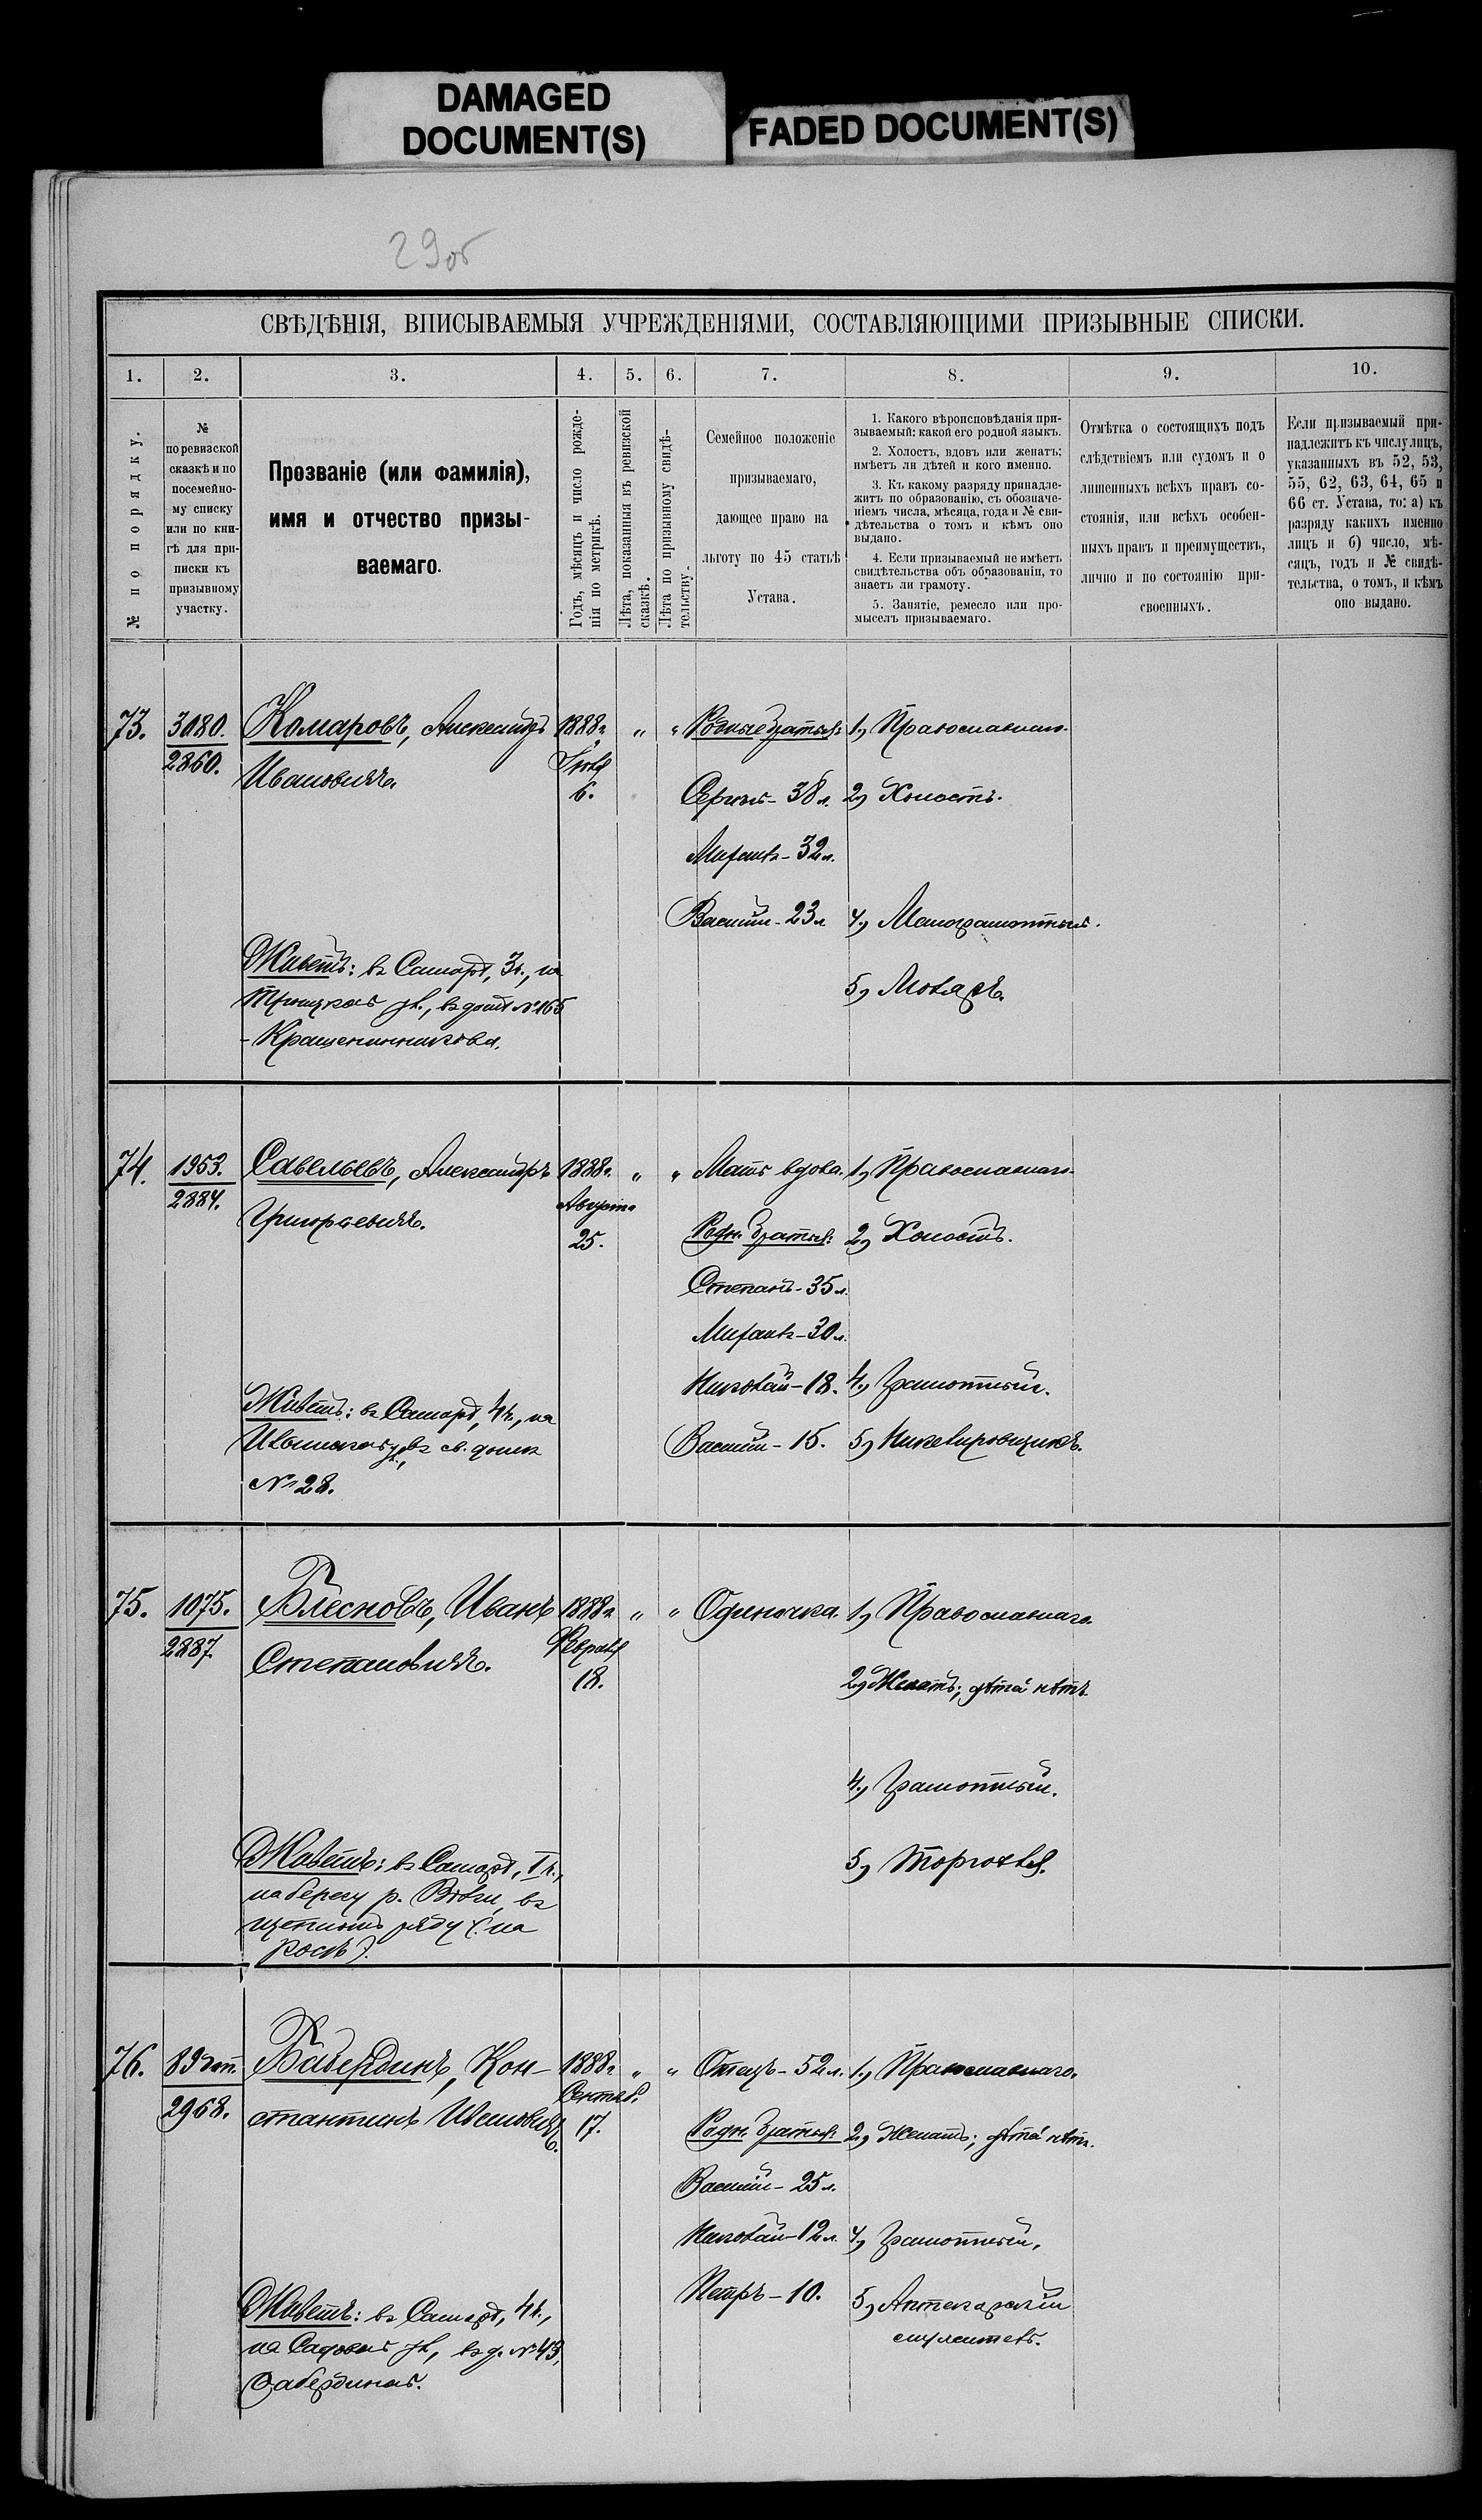 DAMAGED
DOCUMENT(S)
FADED DOCUMENT(S)
29об
СВѢДѢНІЯ, ВПИСЫВАЕМЫЯ УЧРЕЖДЕНІЯМИ, СОСТАВЛЯЮЩИМИ ПРИЗЫВНЫЕ СПИСКИ.
1.
2.
3.
4.
5.
6.
7.
8.
9.
10.
№ по порядку.
№
по ревизской
сказкѣ и по
посемейно-
му списку
или по кни-
гѣ для при-
писки къ
призывному
участку.
Прозваніе (или фамилія),
имя и отчество призы-
ваемаго.
Годъ, мѣсяцъ и число рожде-
нія по метрикѣ.
Лѣта, показанныя въ ревизской
сказкѣ.
Лѣта по призывному свидѣ-
тельству.
Семейное положеніе
призываемаго,
дающее право на
льготу по 45 статьѣ
Устава.
1. Какого вѣроисповѣданія при-
зываемый: какой его родной языкъ.
2. Холостъ, вдовъ или женатъ;
имѣетъ ли дѣтей и кого именно.
3. Къ какому разряду принадле-
житъ по образованію, съ обозначе-
ніемъ числа, мѣсяца, года и № сви-
дѣтельства о томъ и кѣмъ оно
выдано.
4. Если призываемый не имѣетъ
свидѣтельства объ образованіи, то
знаетъ ли грамоту.
5. Занятіе, ремесло или про-
мыселъ призываемаго.
Отмѣтка о состоящихъ подъ
слѣдствіемъ или судомъ и о
лишенныхъ всѣхъ правъ со-
стоянія, или всѣхъ особен-
ныхъ правъ и преимуществъ,
лично и по состоянію при-
своенныхъ.
Если призываемый при-
надлежитъ къ числу лицъ,
указанныхъ въ 52, 53,
55, 62, 63, 64, 65 и
66 ст. Устава, то: а) къ
разряду какихъ именно
лицъ и б) число, мѣ-
сяцъ, годъ и № свидѣ-
тельства, о томъ, и кѣмъ
оно выдано.
73.
3080.
2860.
Комаровъ, Александръ
Ивановичъ.
1888г.
Іюля
6.
"
"
Родные братья:
Сергѣй - 38 л.
Михаилъ - 32 л.
Василій - 23 л.
1, Православнаго.
2, Холостъ.
4, Малограмотный.
5, Маляръ.
Живетъ: въ Самарѣ, 3ч., на
Троицкой ул., въ домѣ № 165
- Крашенинникова.
74.
1953.
2884.
Савельевъ, Александръ
Григорьевичъ.
1888г.
Августа
25.
"
"
Мать вдова.
Родн. братья:
Степанъ - 35 л.
Михаилъ - 30 л.
Николай - 18.
Василій - 15.
1, Православнаго.
2, Холостъ.
4, Грамотный.
5, Никелировщикъ.
Живетъ: въ Самарѣ, 4ч., на
ул., въ св. домѣ
№ 28.
75.
1075.
2887.
Блесновъ, Иванъ
Степановичъ.
1888г.
Февраля
18.
"
"
Одиночка.
1, Православнаго.
2, Женатъ; дѣтей нѣтъ.
4, Грамотный.
5, Торговля.
Живетъ: въ Самарѣ, I ч.,
на берегу р. Волги, въ
щепномъ ряду (на
косѣ).
76.
89 зап.
2968.
Бабердинъ, Кон-
стантинъ Ивановичъ.
1888г.
Сентяб.
17.
"
"
Отецъ - 52 л.
Родн. братья:
Василій - 25 л.
Николай - 12 л.
Петръ - 10.
1, Православнаго.
2, Женатъ; дѣтей нѣтъ.
4, Грамотный.
5, Аптекарскій
служитель.
Живетъ: въ Самарѣ, 4ч.,
на Садовой ул., въ д. № 43,